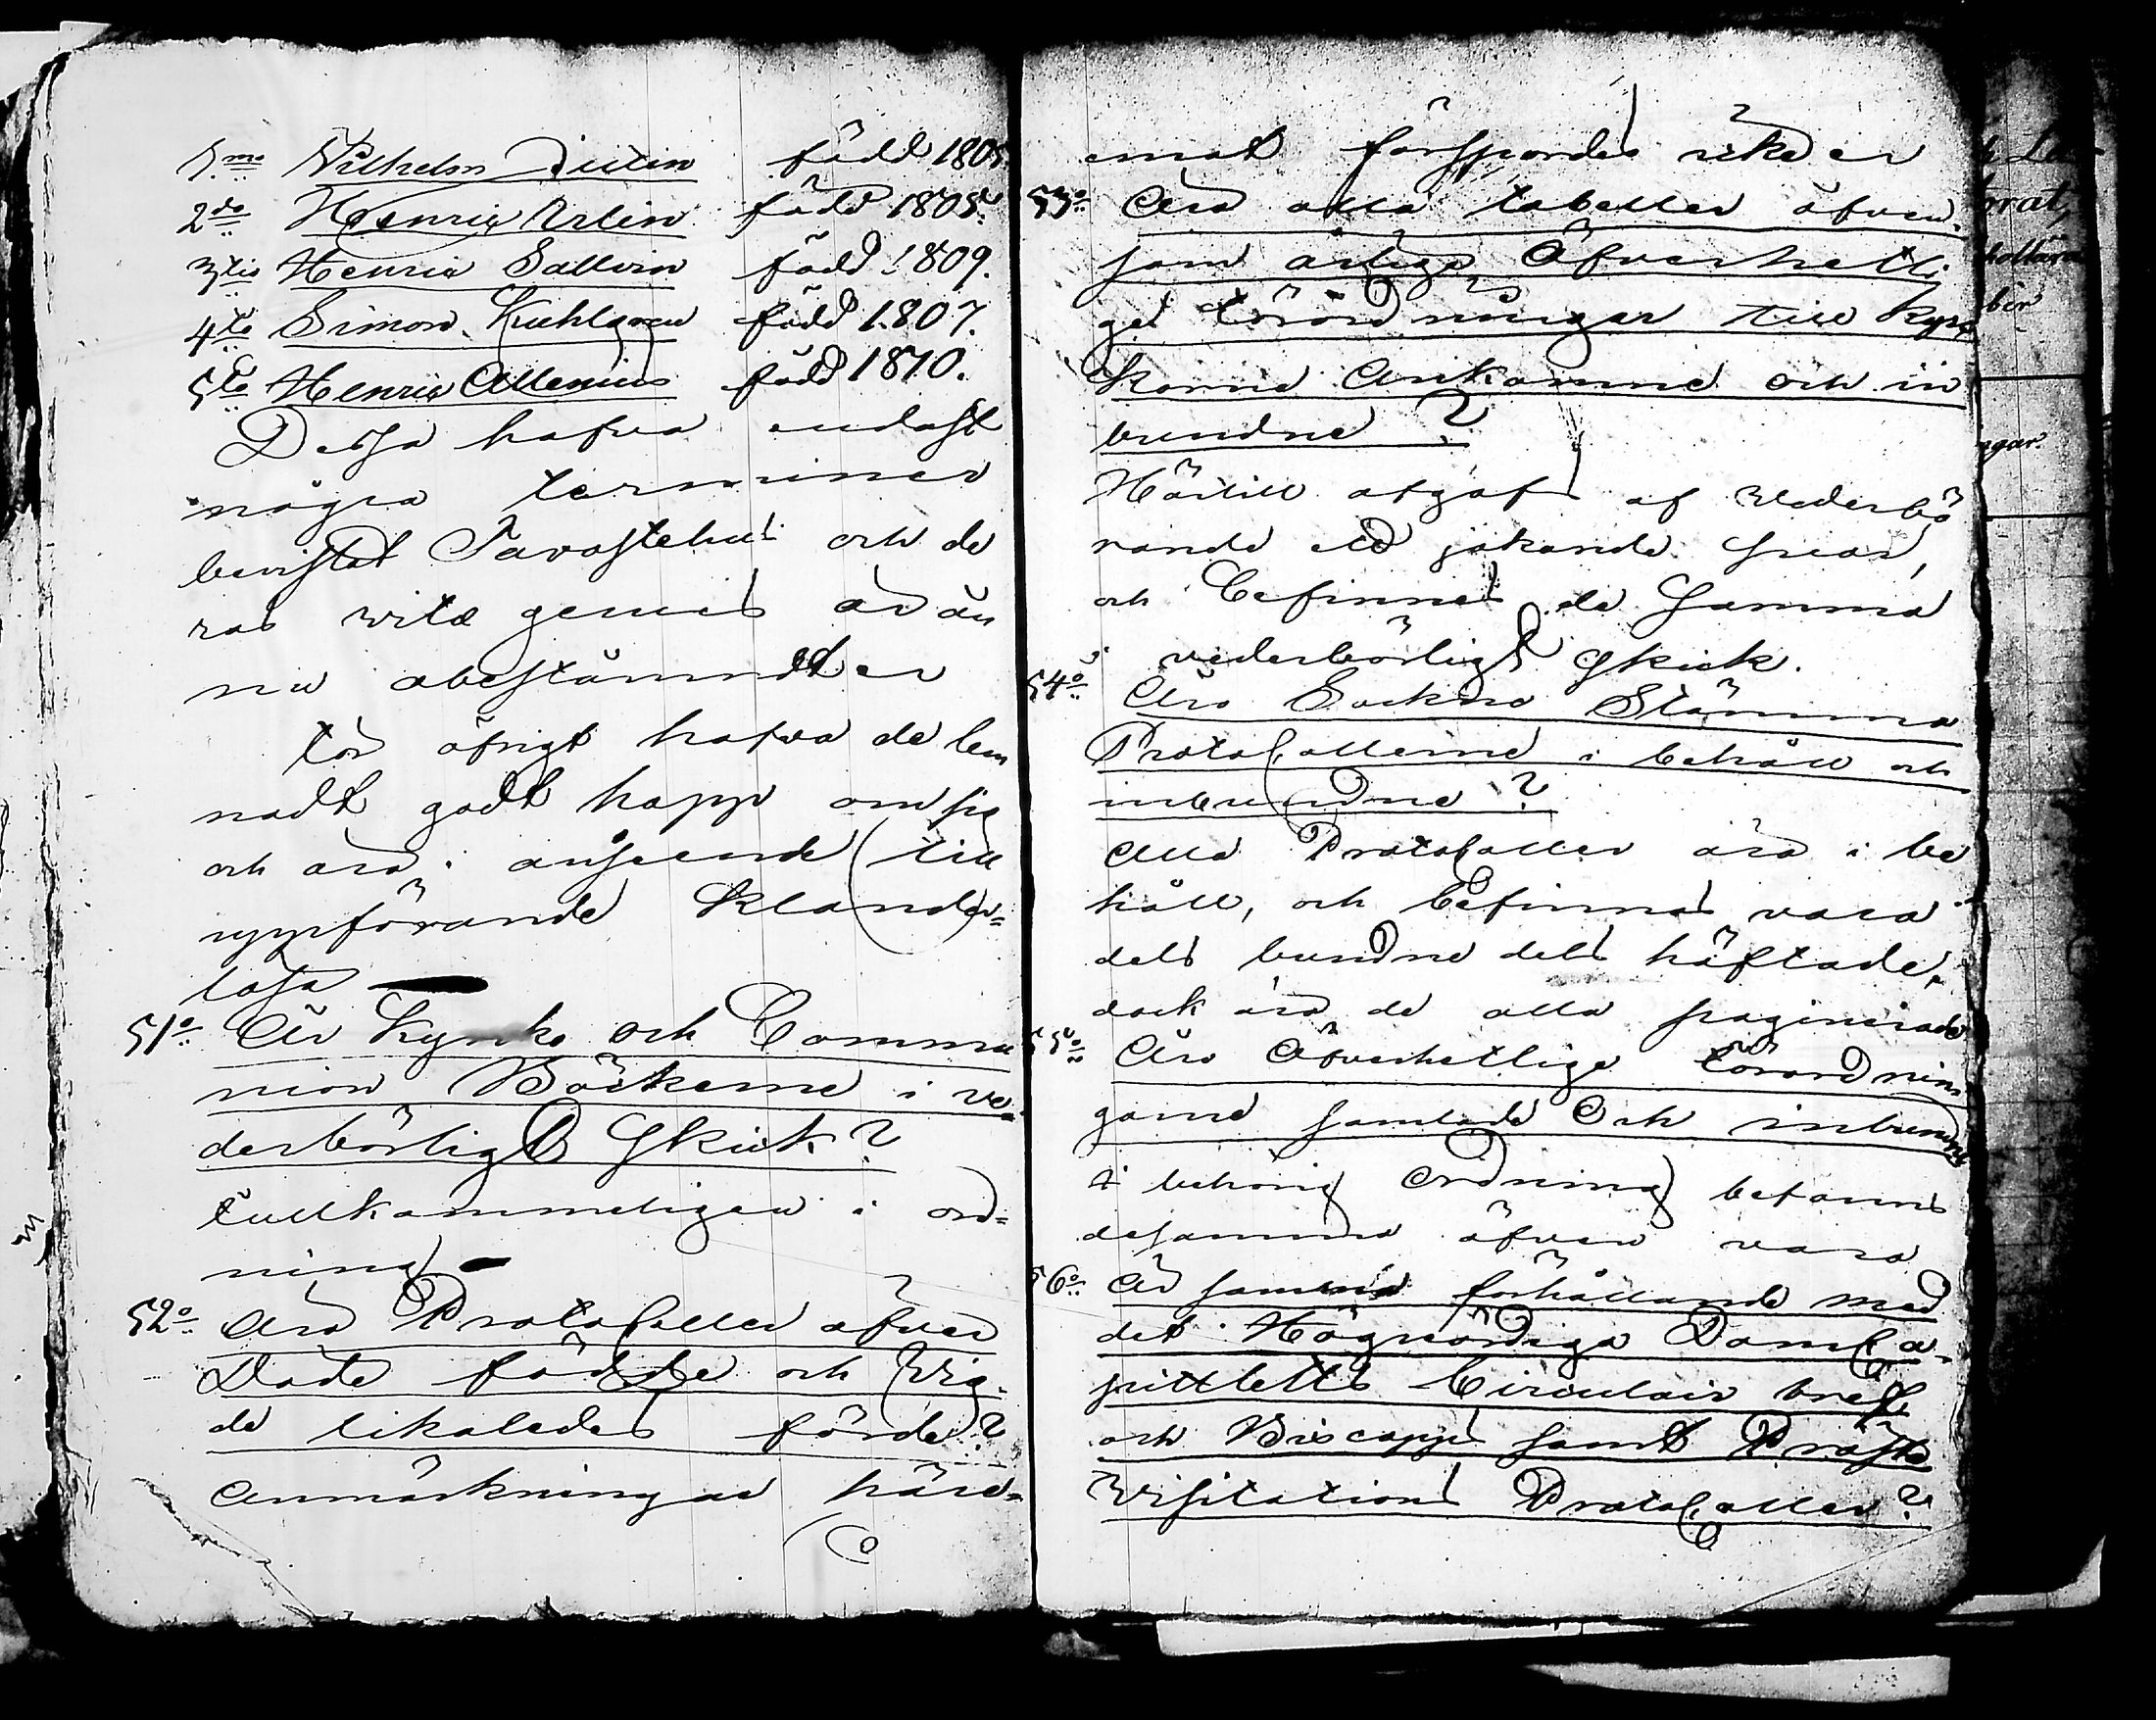 1mo Wilhelm född 1805
2do Henric Orlin född 1805.
3tio Henric Sallvin född 1809.
4to Simon född 1807.
5to Henric Allenius född 1810.
Dessa hafva endast
några terminer
bevistat Tavastehus och de
ras vitæ genus är än
nu obestämdt er
För öfrigt hafva de lem
nadt godt hopp om sig
och äro i anseende till
uppförande klander=
lösa —
51o Är Kyrko och Commu
nion Böckerne i ve=
derbörligt Skick?
Fullkommeligen i ord=
ning —
52o Äro Protocoller öfver
Döde födde och Vig
de likaledes förde?
Anmärkningar häre=
emot försspordes icke er
53o Äro alla tabeller äfven
som årlige Öfverhetli
ge Förordningar till Kyr
korne Ankomne och in
bundne?
Härtill afgafs af Vederbö
rande ett jakande svar,
och befinnes de samma
i vederbörligt Skick.
54o Äro Sockne Stämma
Protocollerne i behåll och
inbundne?
Alla Protocoller äro i be
håll, och befinnas vara
dels bundne dels häftade,
dock äro de alla paginerade
55o Äro Öfverhetlige Förordnin
garne samlade Och inbundne
I behörig Ordning befanns
desamma äfven vara
56o Är samma förhållande med
det Högvördiga Domca=
pittlets Circulair bref
och Biscopps samt Prosts
Visitations Protocoller?